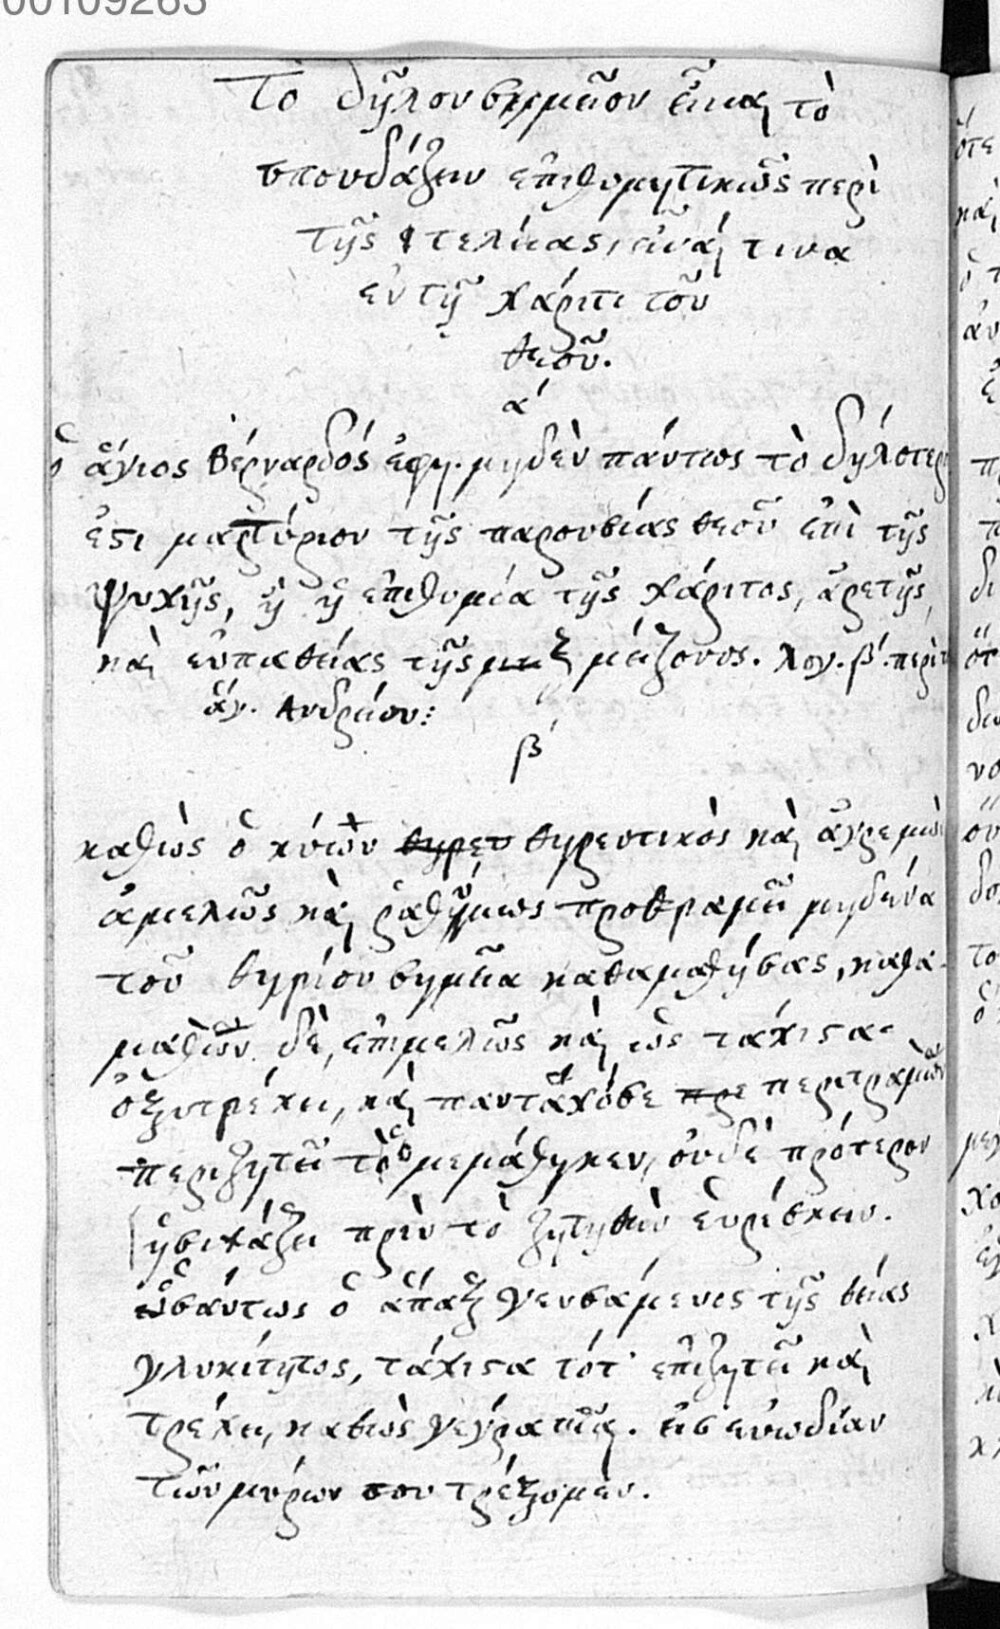 00109263
Τὸ δῆλον σημεῖον εἶναι τὸ
σπουδάζειν ἐπιθυμητικῶς περὶ
τῆς τελείας, εἶναι τινα
ἐν τῇ χάριτι τοῦ
θεοῦ.
α´
ὁ ἅγιος Βέρναρδός ἔφη. μηδὲν πάντως τὸ δηλότερ
ἐστι μαρτύριον τῆς παρουσίας θεοῦ ἐπὶ τῆς
ψυχῆς, ἢ ἡ ἐπιθυμία τῆς χάριτος, ἀρετῆς,
καὶ εὐπαθείας τῆς μείζονος. λογ. β´. περὶ τ
ἁγ. Ἀνδρείου:
β´
καθὼς ὁ κύων θηρευτικὸς καὶ
ἀμελῶς καὶ ῥαθύμως προτραμεῖ μηδένα
τοῦ θηρίου σημεῖα καταμαθήσας, καλα-
μαθὼν δὲ, ἐπιμελῶς καὶ ὡς τάχιστα
ὀξυτρέχει, καὶ πανταχόσε περιτραμὼν
περιζητεῖ τὸ ὃ μεμάθηκεν, οὐδὲ πρότερον
ἡσυχάζει πρὶν τὸ ζητηθὲν εὑρίσκειν.
ὡσαύτως ὁ ἅπαξ γευσάμενος τῆς θείας
γλυκύτητος, τάχιστα τότ' ἐπιζητεῖ καὶ
τρέχει, καθὼς γέγραπται. εἰς εὐωδίαν
τῶν μύρων σου τρέξομεν.